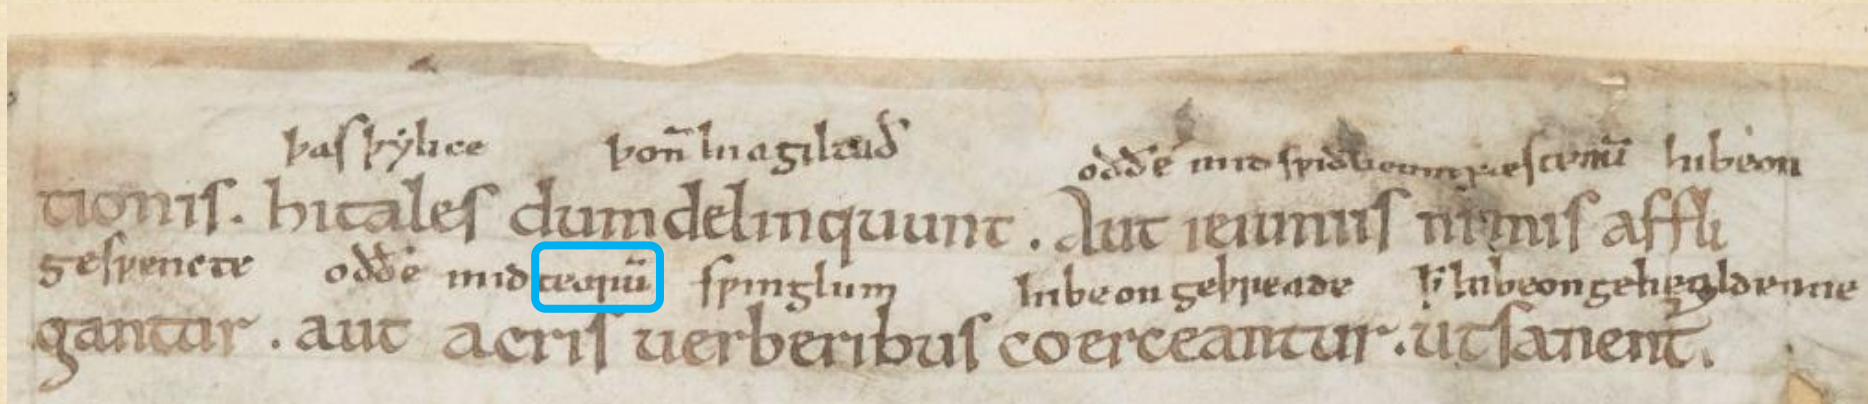 þas þẏlice þon̄ hi agiltað oððe mid sƿiðlicum festenū hi beon
tionis. hi tales dum delinquunt. Aut ieiuniis nimis affli
gesƿencte oððe mid tearū sƿinglum hi beon geþreade ꝥ hi beon
gantur. aut acris uerberibus coerceantur. ut sanent̄.